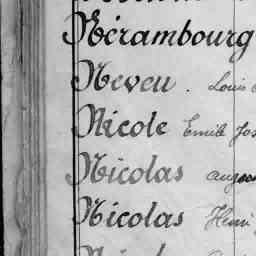 Nérambourg
Neveu. Louis
Nicole Emile Jos
Nicolas
Nicolas Henri